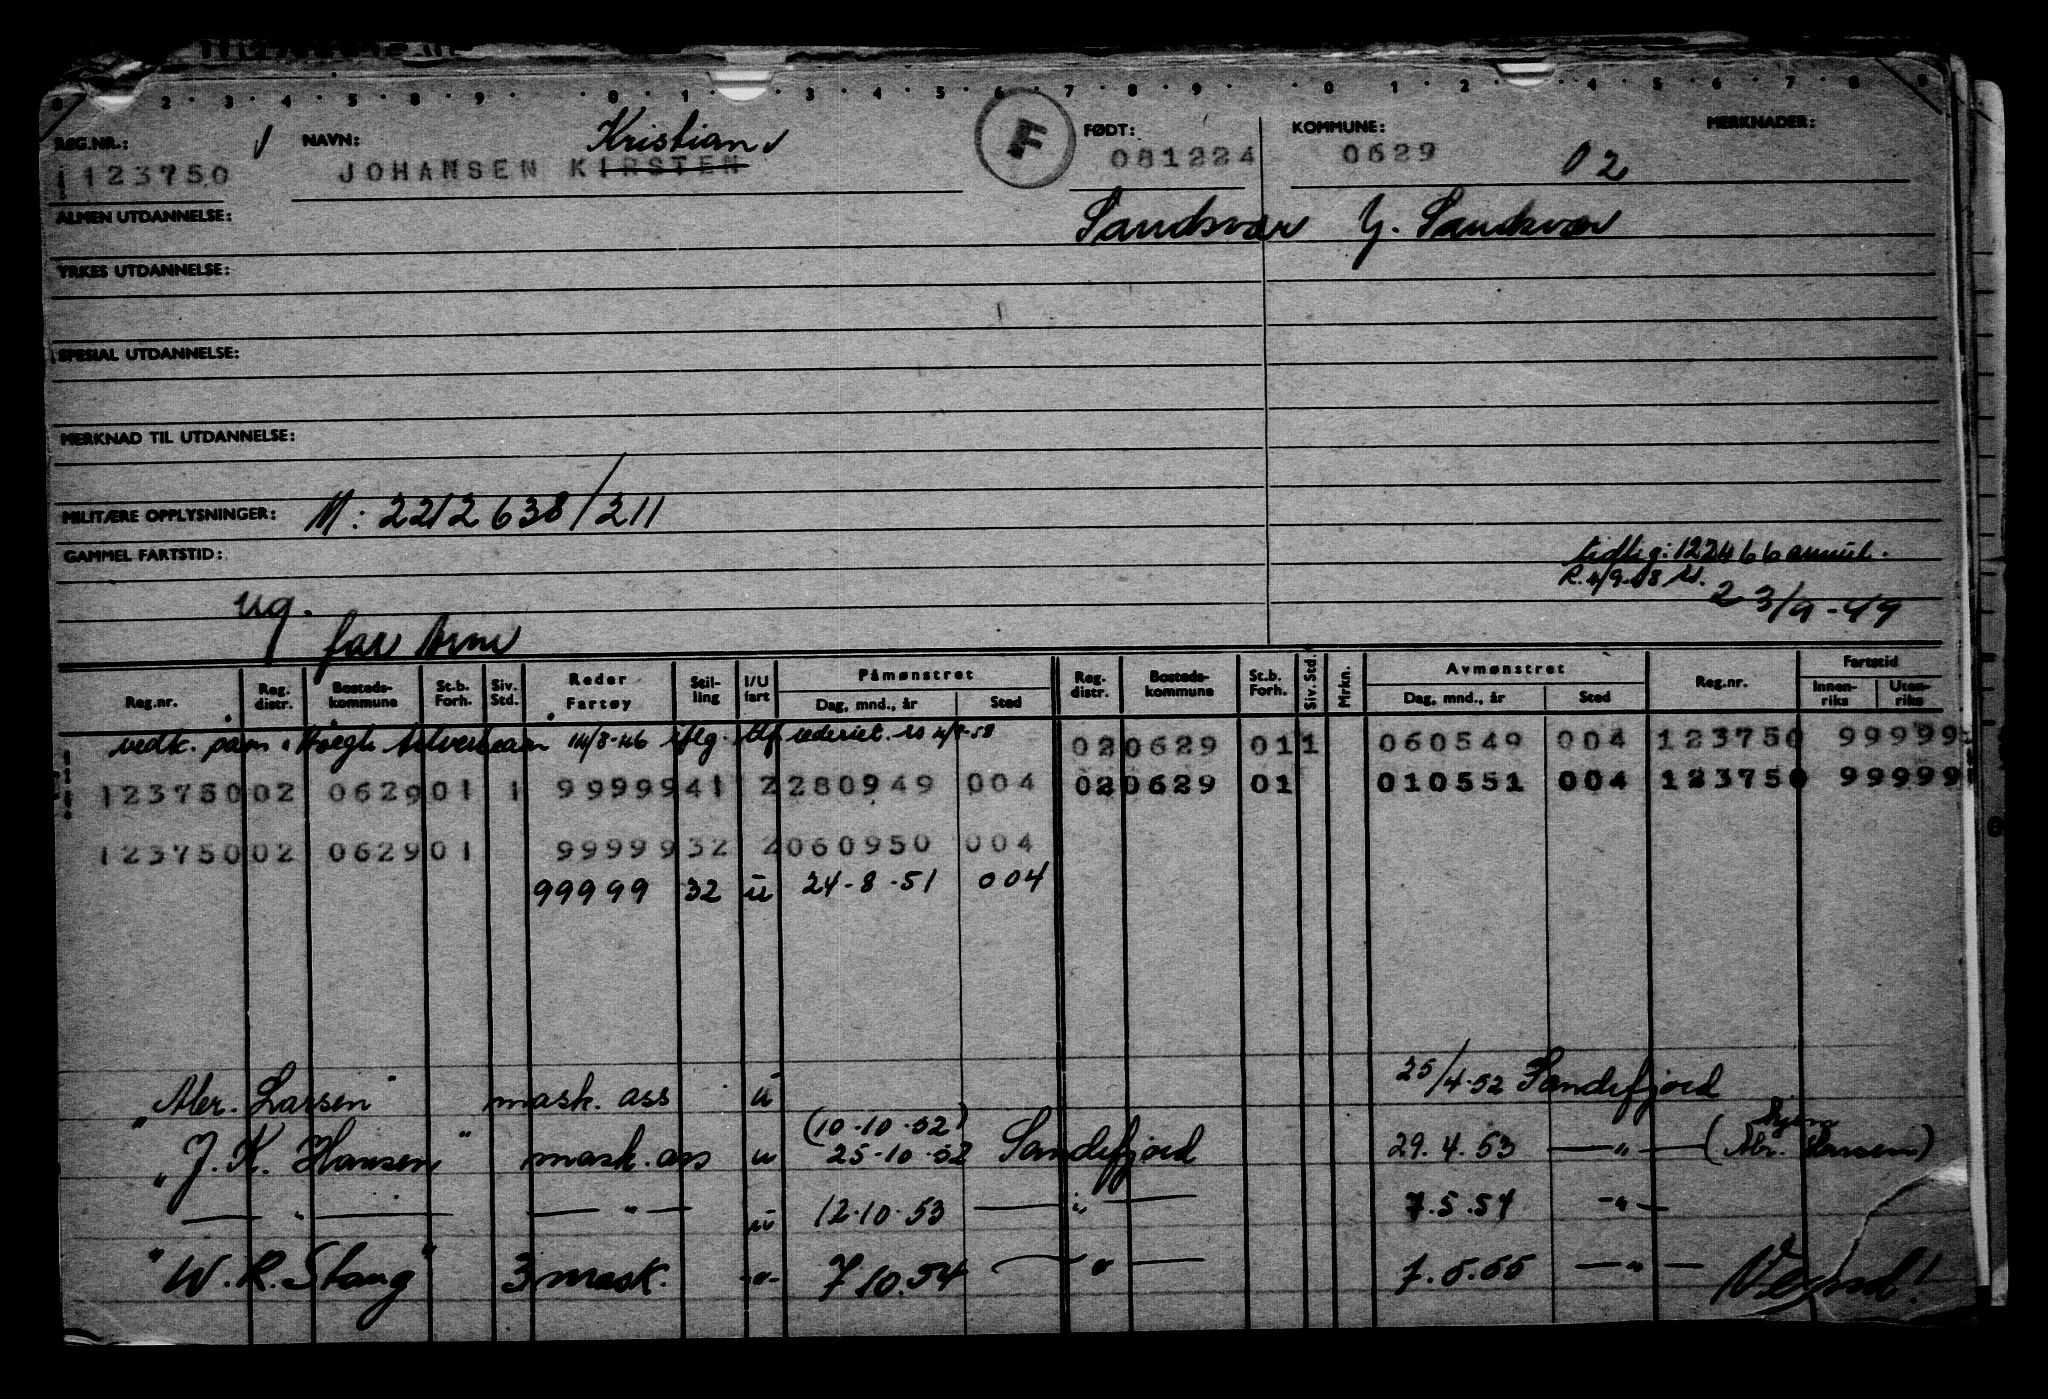 0 · 2 · 3 · 4 · 5 · 8 · 9 · 0 · 1 · 3 · 4 · 5 · 6 · 7 · 8 · 9 · 0 1 · 2 · 4 · 5 6 · 7 · 8 · 9
REG.NR.: NAVN: Kristian F FØDT: KOMMUNE: MERKNADER:
123750 JOHANSEN KIRSTEN 081224 0629 02
ALMEN UTDANNELSE: Sandsvær Y. Sandsvær
YRKES UTDANNELSE:
SPESIAL UTDANNELSE:
MERKNAD TIL UTDANNELSE:
MILITÆRE OPPLYSNINGER: M: 2212638/211
GAMMEL FARTSTID: tidlig: 122466 annul.
ug. 23/9-49
far Arne
Reg.nr. Reg. distr. Bosteds-kommune St.b. Forh. Siv. Std. Reder Fartøy Stil-ling I/U fart Påmønstret Dag, mnd., år Sted Reg. distr. Bosteds-kommune St.b. Forh. Siv. Std. Mrkn. Avmønstret Dag, mnd., år Sted Reg.nr. Fartstid Innen-riks Uten-riks
14/8-46 iflg. 02 0629 01 1 060549 004 123750 99999
123750 02 0629 01 1 99999 41 2 280949 004 02 0629 01 010551 004 123750 99999
123750 02 0629 01 99999 32 2 060950 004
99999 32 u 24-8-51 004
"Abr. Larsen" mask. ass u 25/4-52 Sandefjord
"J. K. Hansen" mask. ass u (10-10-52) 25-10-52 Sandefjord 29.4.53 — " — (Abr. Larsen)
— " — — " — u 12-10-53 — " — 7.5.54 — " —
"W. R. Stang" 3 mask. - " - 7 10.54 — " — 7.5.55 — " — Vend!